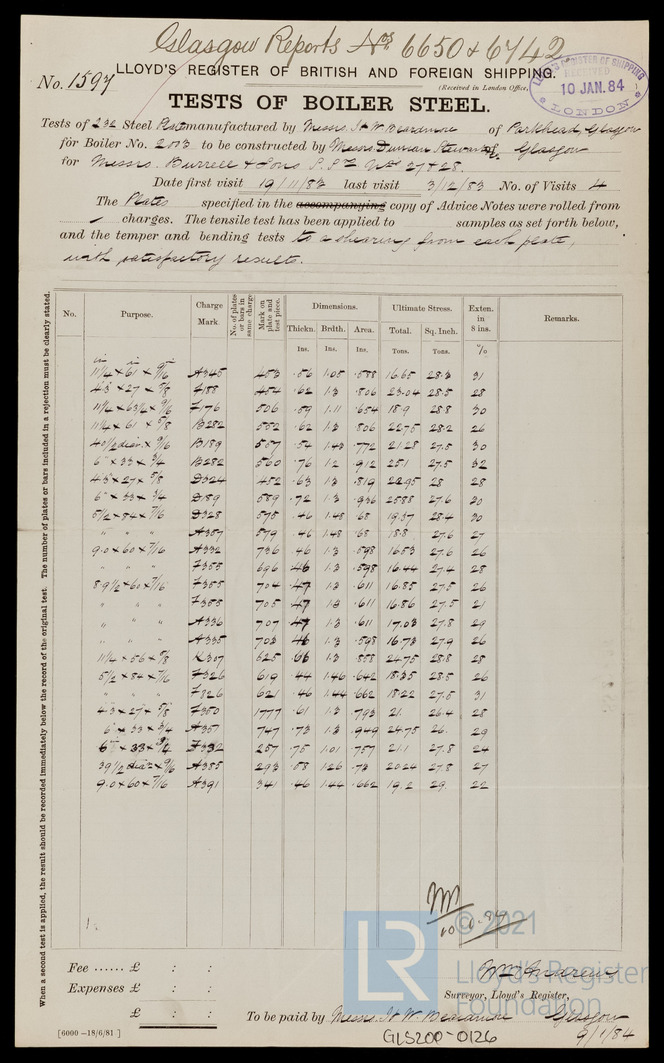 Glasgow Reports Nos 6650 & 6742
No. 1597
LLOYD'S REGISTER OF BRITISH AND FOREIGN SHIPPING.
(Received in London Office,
LLOYD'S REGISTER OF SHIPPING
RECEIVED
10 JAN. 84
LONDON
TESTS OF BOILER STEEL.
Tests of 232 Steel Plates manufactured by Messrs. of Parkhead, Glasgow
for Boiler No. to be constructed by Messrs Duncan Stewart & Co. Glasgow
for Messrs. Burrell & Sons S.S. Nos 27 & 28.
Date first visit 19/11/83 last visit 3/12/83 No. of Visits 4
The Plates specified in the accompanying copy of Advice Notes were rolled from
charges. The tensile test has been applied to samples as set forth below,
and the temper and bending tests to a shearing from each plate,
with satisfactory results.
When a second test is applied, the result should be recorded immediately below the record of the original test. The number of plates or bars included in a rejection must be clearly stated.
No. Purpose. Charge Mark. No. of plates or bars in same charge Mark on plate and test piece. Dimensions. Ultimate Stress. Exten. in 8 ins. Remarks.
Thickn. Brdth. Area. Total. Sq. Inch.
Ins. Ins. Ins. Tons. Tons. %
11¼ × 61 × 9/16 A345 453 .56 1.05 .588 16.65 28.3 31
4.3 × 27 × 5/8 F188 454 .62 1.3 .806 23.04 28.5 28
11¼ × 63½ × 9/16 F176 506 .59 1.11 .654 18.9 28.8 30
11¼ × 61 × 5/8 B282 552 .62 1.3 .806 22.75 28.2 26
40½ dia. × 9/16 B189 557 .54 1.43 .772 21.28 27.5 30
6" × 33 × 3/4 B282 560 .76 1.2 .912 25.1 27.5 32
4.3 × 27 × 5/8 D324 452 .63 1.3 .819 22.95 28 28
6" × 33 × 3/4 D189 589 .72 1.3 .936 25.88 27.6 30
5½ × 84 × 7/16 D328 575 .46 1.48 .68 19.37 28.4 30
" " " A357 579 .46 1.48 .68 18.8 27.6 27
9.0 × 60 × 7/16 A332 736 .46 1.3 .598 16.53 27.6 26
" " " F355 696 .46 1.3 .598 16.44 27.4 28
8.9½ × 60 × 7/16 F355 704 .47 1.3 .611 16.85 27.5 26
" " " F355 705 .47 1.3 .611 16.86 27.5 21
" " " A336 707 .47 1.3 .611 17.03 27.8 29
" " " A335 703 .46 1.3 .598 16.73 27.9 26
11¼ × 56 × 5/8 K307 625 .66 1.3 .858 24.75 28.8 28
5½ × 84 × 7/16 F326 619 .44 1.46 .642 18.35 28.5 26
" " " F326 621 .46 1.44 .662 18.22 27.5 31
4.3 × 27 × 5/8 F350 1777 .61 1.3 .793 21. 26.4 28
6" × 33 × 3/4 A357 747 .73 1.3 .949 24.75 26. 29
6" × 33 × 3/4 F332 257 .75 1.01 .757 21.1 27.8 24
39½ dia. × 9/16 A385 293 .58 1.26 .73 20.24 27.8 27
9.0 × 60 × 7/16 A391 341 .46 1.44 .662 19.2 29 22
LR
© 2021
Lloyd's Register
Foundation
Fee ...... £ : :
Expenses £ : :
£ : :
Wm Andrew
Surveyor, Lloyd's Register,
Glasgow
To be paid by Messrs.
9/1/84
[6000 –18/6/81 ]
GLS200-0126